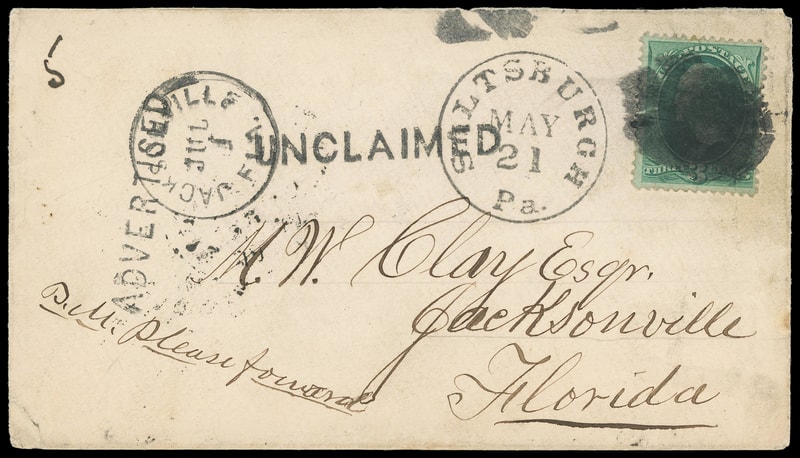 5
ADVERTISED
JACKSONVILLE FLA.
JUL
1
UNCLAIMED
SALTSBURGH
MAY
21
Pa.
U.S. POSTAGE
THREE 3 CENTS
M. W. Clay Esqr.
Jacksonville
Florida
P.M. please forward